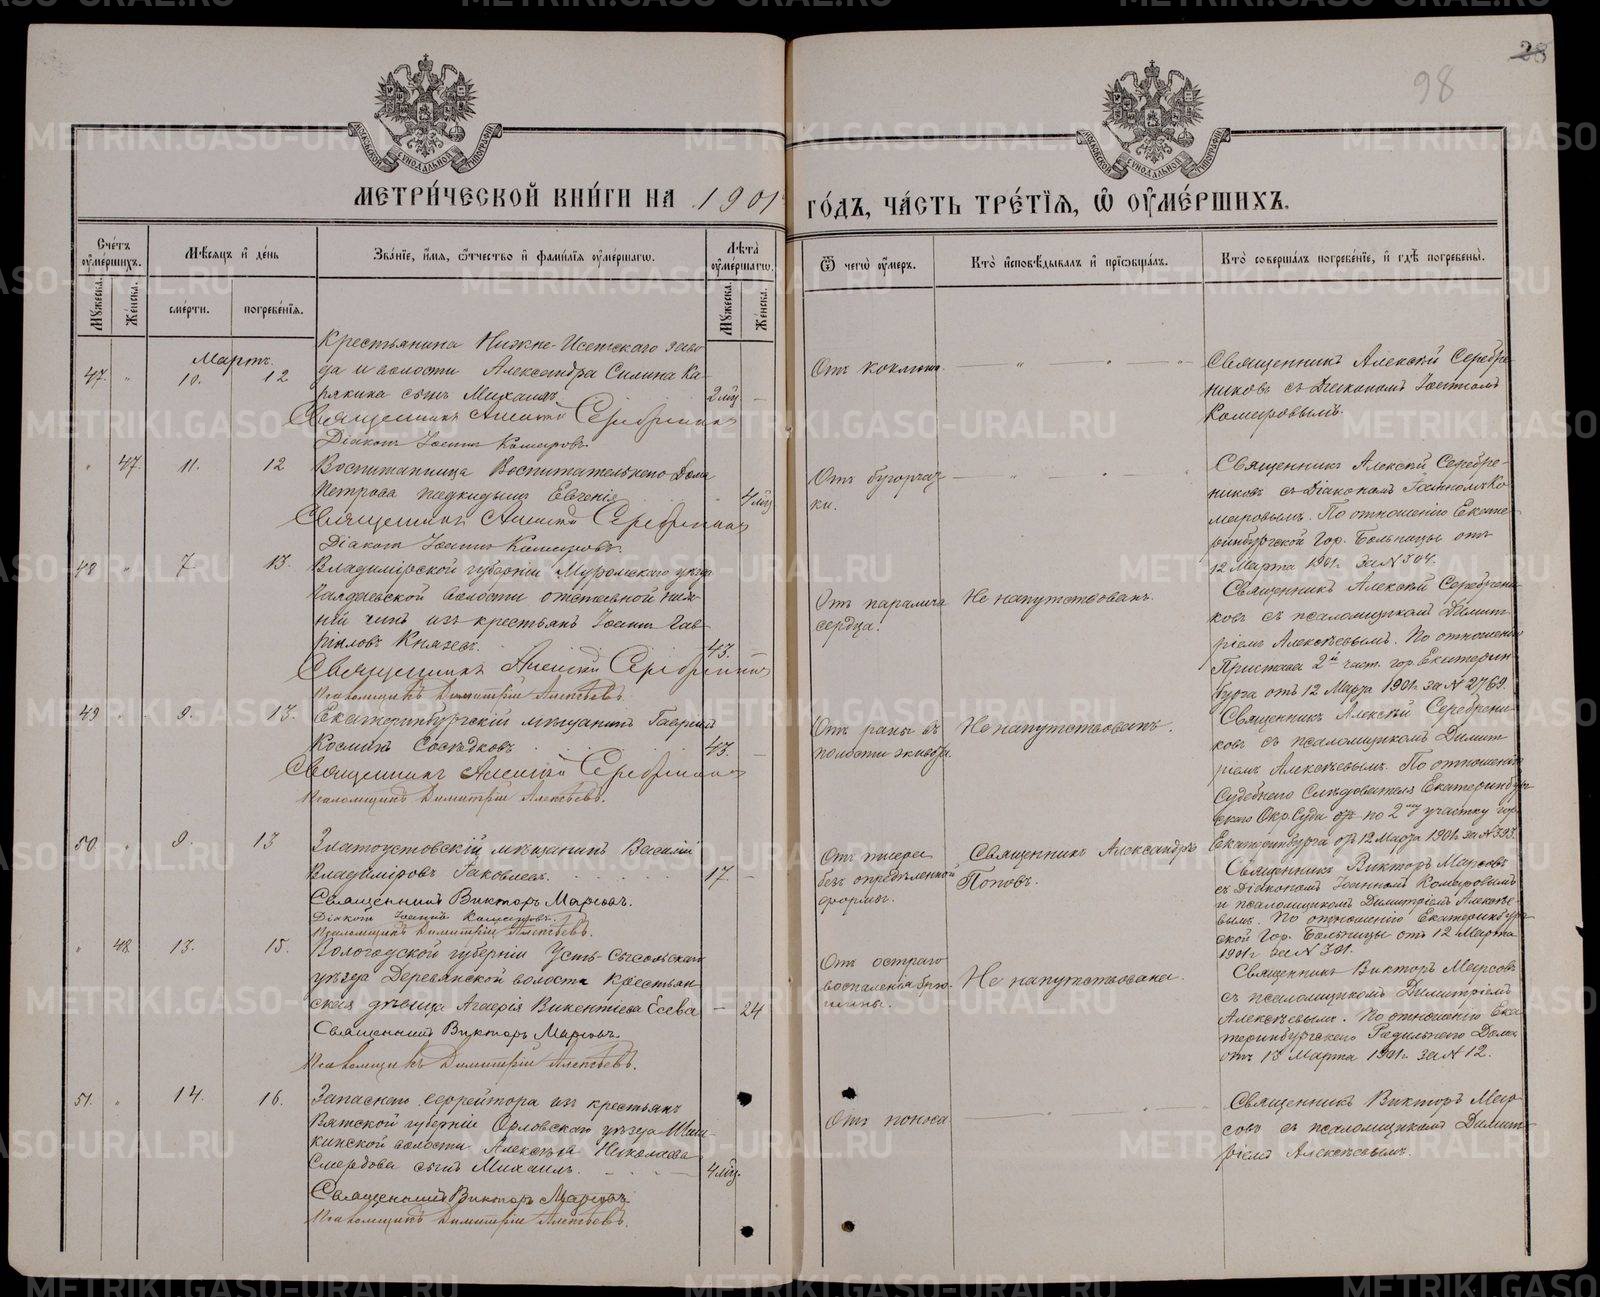 28
98
МЕТРИ́ЧЕСКОЙ КНИ́ГИ НА 1901 ГО́ДЪ, ЧА́СТЬ ТРЕ́ТІѦ, Ѽ ОУ҆МЕ́РШИХЪ.
Сче́тъ оу҆ме́ршихъ.
Мѣ́сяцъ и҆ де́нь
Зва́нїе, и҆́мѧ, ѻ҆́тчество и҆ фами́лїѧ оу҆ме́ршагѡ.
Лѣ́та оу҆ме́ршагѡ.
Ѿ чегѡ̀ оу҆́меръ.
Кто̀ и҆сповѣ́дывалъ и҆ прїѡбща́лъ.
Кто̀ соверша́лъ погребе́нїе, и҆ гдѣ̀ погребены̀.
Мꙋ́жеска.
Же́нска.
сме́рти.
погребе́нїѧ.
Мꙋ́жеска.
Же́нска.
Мартъ
47. " 10. 12
Крестьянина Нижне-Исетскаго заво-
да и волости Александра Силина Ка-
рякина сынъ Михаилъ 2 мц
Священникъ Алексій Серебрениковъ
Діаконъ Іоаннъ Комаровъ.
Отъ коклюша.
Священникъ Алексій Серебре-
никовъ съ Діакономъ Іоанномъ
Комаровымъ.
" 47. 11. 12
Воспитанница Воспитательнаго Дома
Петрова подкидышъ Евгенія 4 мц
Священникъ Алексій Серебрениковъ
Діаконъ Іоаннъ Комаровъ.
Отъ бугорчат-
ки.
Священникъ Алексій Серебре-
никовъ съ Діакономъ Іоанномъ Ко-
маровымъ. По отношенію Екате-
ринбургской Гор. Больницы отъ
12 Марта 1901 г. за № 304.
48 " 7. 13.
Владимірской губерніи Муромскаго уѣзда
волости отставной ниж-
ній чинъ изъ крестьянъ Іоаннъ Гав-
риловъ Князевъ. 43.
Священникъ Алексій Серебрениковъ
Псаломщикъ Димитрій Алексѣевъ.
Отъ паралича
сердца.
Не напутствованъ.
Священникъ Алексій Серебрени-
ковъ съ псаломщикомъ Димит-
ріемъ Алексѣевымъ. По отношенію
Пристава 2й част. гор. Екатерин-
бурга отъ 12 Марта 1901 г. за № 2769.
49 " 9. 13.
Екатеринбургскій мѣщанинъ Гавріилъ
Косминъ Сосѣдковъ 43.
Священникъ Алексій Серебрениковъ
Псаломщикъ Димитрій Алексѣевъ.
Отъ раны въ
полости живота.
Не напутствованъ.
Священникъ Алексій Серебрени-
ковъ съ псаломщикомъ Димит-
ріемъ Алексѣевымъ. По отношенію
Судебнаго Слѣдователя Екатеринбур-
скаго Окр. Суда по 2му участку гор.
Екатеринбурга отъ 12 Марта 1901 г. за № 393.
50 " 9. 13
Златоустовскій мѣщанинъ Василій
Владиміровъ Яковлевъ. 17 -
Священникъ Викторъ Марсовъ.
Діаконъ Іоаннъ Комаровъ.
Псаломщикъ Димитрій Алексѣевъ.
Отъ тифа
безъ опредѣленной
формы.
Священникъ Александръ
Поповъ.
Священникъ Викторъ Марсовъ
съ Діакономъ Іоанномъ Комаровымъ
и псаломщикомъ Димитріемъ Алексѣе-
вымъ. По отношенію Екатеринбург-
ской Гор. Больницы отъ 12 Марта
1901 г. за № 301.
" 48 13. 15.
Вологодской губерніи Усть-Сысольскаго
уѣзда Деревянской волости Крестьян-
ская дѣвица Агаѳія Викентіева Есева - 24
Священникъ Викторъ Марсовъ.
Псаломщикъ Димитрій Алексѣевъ.
Отъ остраго
воспаленія брю-
шины.
Не напутствована.
Священникъ Викторъ Марсовъ
съ псаломщикомъ Димитріемъ
Алексѣевымъ. По отношенію Ека-
теринбургскаго Родильнаго Дома
отъ 13 Марта 1901 г. за № 12.
51. " 14. 16.
Запаснаго ефрейтора изъ крестьянъ
Вятской губерніи Орловскаго уѣзда
волости Алексѣя Николаева
Смердова сынъ Михаилъ. 4 мц.
Священникъ Викторъ Марсовъ
Псаломщикъ Димитрій Алексѣевъ.
Отъ поноса
Священникъ Викторъ Мар-
совъ съ псаломщикомъ Димит-
ріемъ Алексѣевымъ.
METRIKI.GASO-URAL.RU